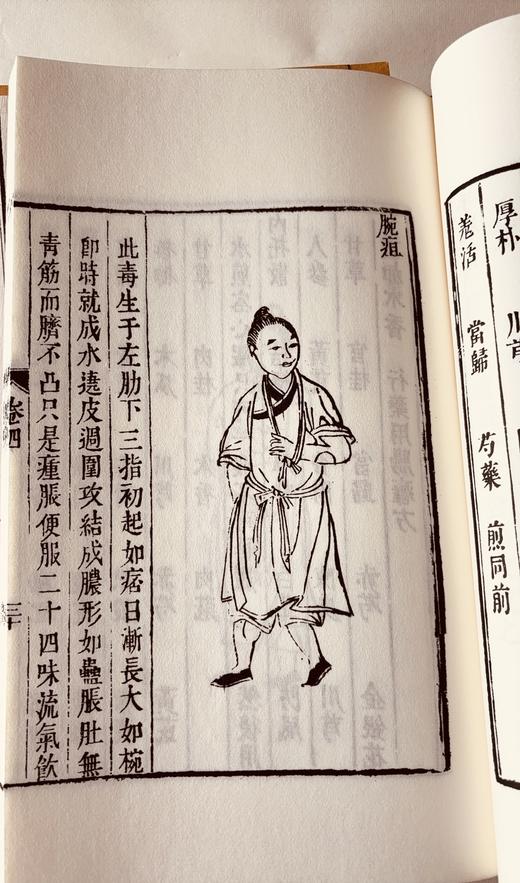 厚朴 川芎
羌活 當歸 芍藥 煎同前
腕疽
此毒生于左肋下三指初起如痞日漸長大如椀
即時就成水遶皮過圍攻結成膿形如蠱脹肚無
青筋而臍不凸只是瘇脹便服二十四味流氣飲
卷四
三十